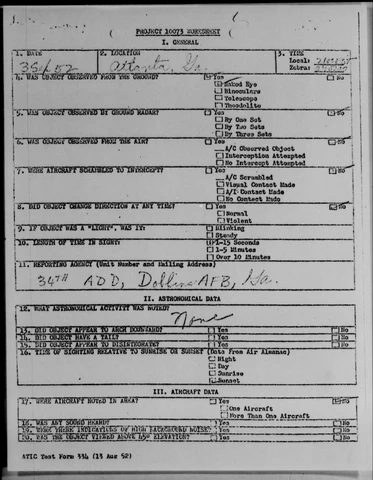 PROJECT 10073 WORKSHEET
I. GENERAL
1. DATE 2. LOCATION 3. TIME
52 Atlanta, Ga. Local:
Zebra:
4. WAS OBJECT OBSERVED FROM THE GROUND? Yes No
Naked Eye
Binoculars
Telescope
Theodolite
5. WAS OBJECT OBSERVED BY GROUND RADAR? Yes No
By One Set
By Two Sets
By Three Sets
6. WAS OBJECT OBSERVED FROM THE AIR? Yes No
A/C Observed Object
Interception Attempted
No Intercept Attempted
7. WERE AIRCRAFT SCRAMBLED TO INTERCEPT? Yes No
A/C Scrambled
Visual Contact Made
A/I Contact Made
No Contact Made
8. DID OBJECT CHANGE DIRECTION AT ANY TIME? Yes No
Normal
Violent
9. IF OBJECT WAS A "LIGHT", WAS IT: Blinking
Steady
10. LENGTH OF TIME IN SIGHT: 1-15 Seconds
1-5 Minutes
Over 10 Minutes
11. REPORTING AGENCY (Unit Number and Mailing Address)
34TH ADD, Dobbins AFB, Ga.
II. ASTRONOMICAL DATA
12. WHAT ASTRONOMICAL ACTIVITY WAS NOTED?
None
13. DID OBJECT APPEAR TO ARCH DOWNWARD? Yes No
14. DID OBJECT HAVE A TAIL? Yes No
15. DID OBJECT APPEAR TO DISINTEGRATE? Yes No
16. TIME OF SIGHTING RELATIVE TO SUNRISE OR SUNSET (Data From Air Almanac)
Night
Day
Sunrise
Sunset
III. AIRCRAFT DATA
17. WERE AIRCRAFT NOTED IN AREA? Yes No
One Aircraft
More Than One Aircraft
18. WAS ANY SOUND HEARD? Yes No
19. WERE THERE INDICATIONS OF HIGH BACKGROUND NOISE? Yes No
20. WAS THE OBJECT VIEWED ABOVE 45° ELEVATION? Yes No
ATIC Test Form 334 (13 Aug 52)